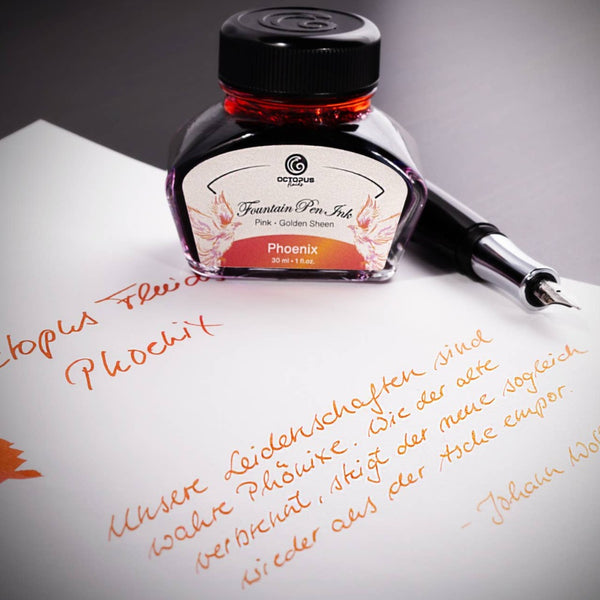 OCTOPUS
Fluids
Fountain Pen Ink
Pink • Golden Sheen
Phoenix
30 ml • 1 fl.oz.
ctopus Fluids
Phoenix
Unsere Leidenschaften sind
wahre Phönixe. Wie der alte
verbrennt, steigt der neue sogleich
wieder aus der Asche empor.
- Johann Wolf